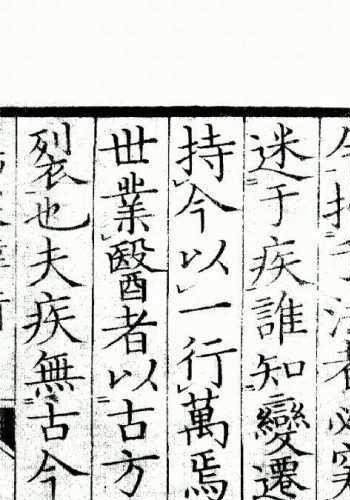 迷于疾誰知變遷
持今以一行萬焉
世業醫者以古方
裂也夫疾無古今